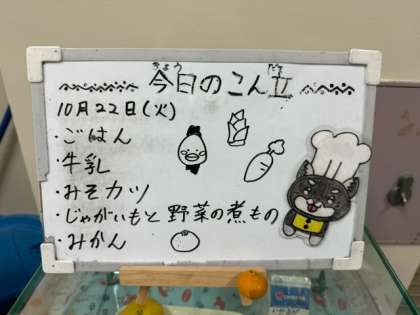 今日のこん立
きょう
だて
10月22日(火)
・ごはん
・牛乳
・みそカツ
・じゃがいもと野菜の煮もの
・みかん